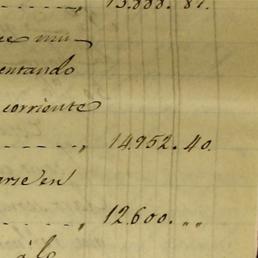 13.888. 87.
que mu-
entando
corriente
14.952. 40.
arse en
12.600. „
á lo